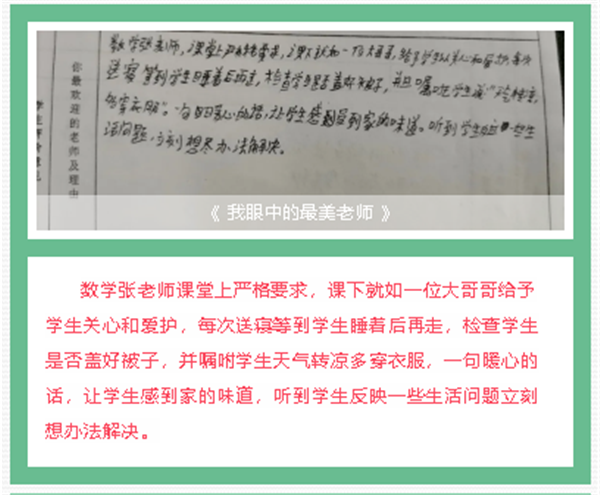 你最欢迎的老师及理由
数学张老师，课堂上严格要求，课下就如一位大哥哥，给予学生以关心和爱护，每次
送寝等到学生睡着后再走，检查学生是否盖好被子，并且嘱咐学生
多穿衣服"。一句暖心的话，让学生感到家的味道。听到学生反映一些生
活问题，立刻想尽办法解决。
《 我眼中的最美老师 》
数学张老师课堂上严格要求，课下就如一位大哥哥给予
学生关心和爱护，每次送寝等到学生睡着后再走，检查学生
是否盖好被子，并嘱咐学生天气转凉多穿衣服，一句暖心的
话，让学生感到家的味道，听到学生反映一些生活问题立刻
想办法解决。